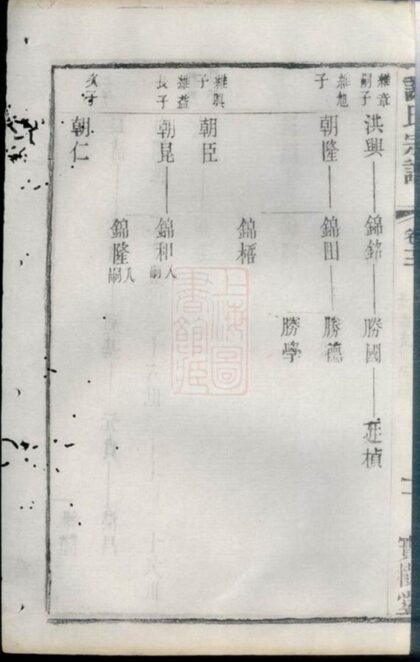 氏宗譜
卷三
寶樹堂
維章嗣子
洪興 錦銘 勝國 廷楨
維旭子
朝隆 錦田 勝德
勝學
錦樞
維興子
朝臣
維益長子
朝昆 錦和入嗣
錦隆入嗣
次子
朝仁
上海圖書館藏